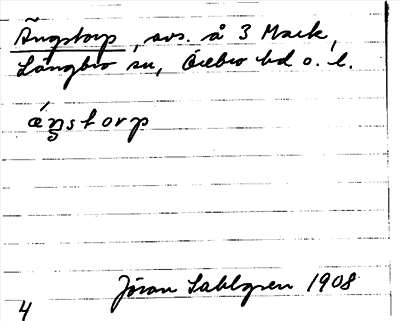 Ängstorp, avs. å 3 Mark,
Långbro sn, Örebro hd o. l.
ængstorp
Jöran Sahlgren 1908
4